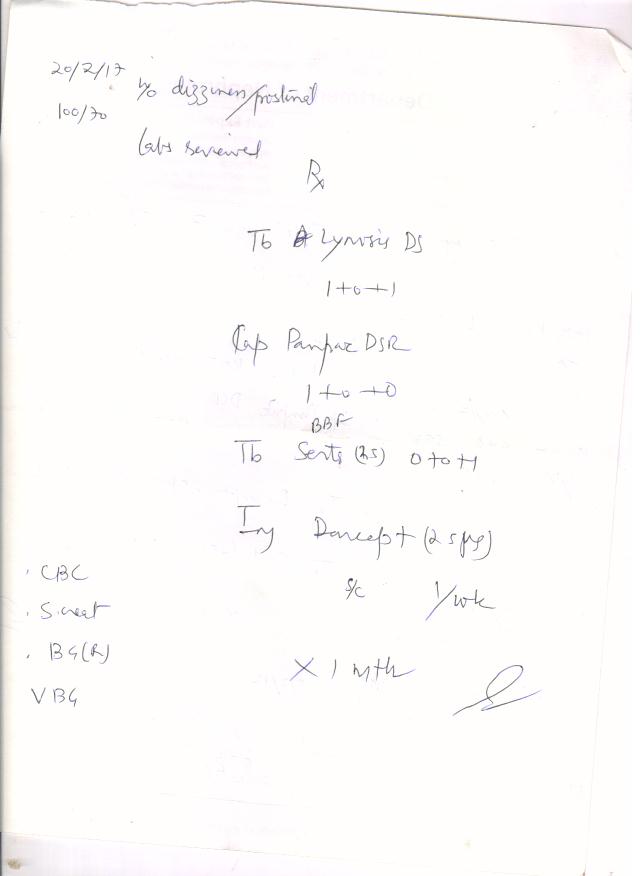 20/2/17 h/o dizziness/postural
100/70
Labs reviewed
Rx
Tb Lynosis DS
1+0+1
Cap Panpac DSR
1+0+0
BBF
Tb Serts (25) 0+0+1
Inj Darcept (25µg)
s/c 1/wk
. CBC
. S.creat
. BG(R)
VBG
X 1 mth